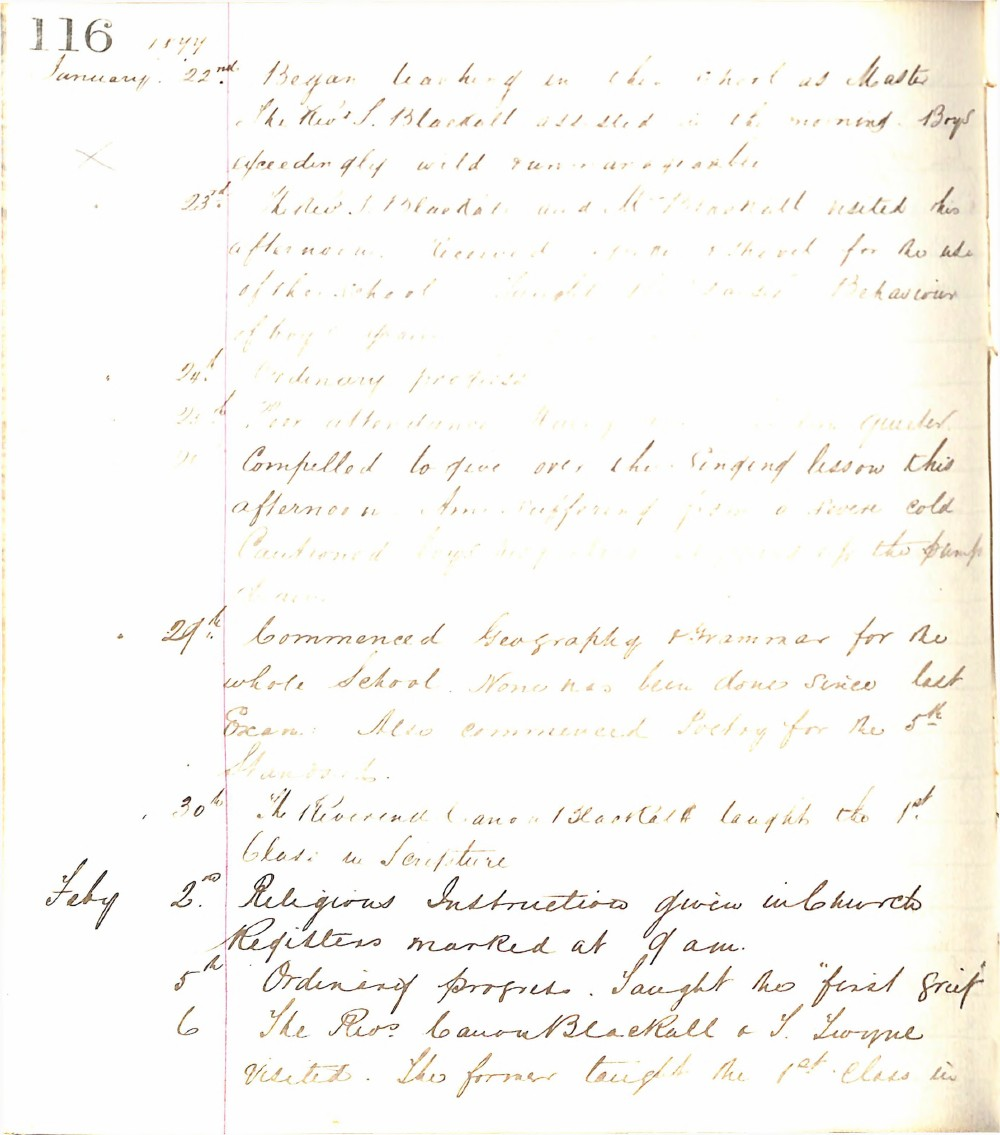 116 1877
January 22nd. Began teaching in the School as Master
The Revd S. Blackall assisted in the morning. Boys
exceedingly wild & unmanageable
23rd. The Rev. S. Blackall and Mrs Blackall visited this
afternoon. Received & shovel for the use
of the School Taught Behaviour
of boys
24th. Ordinary progress
25th Poor attendance quieter.
Compelled to give over the Singing lesson this
afternoon. Am suffering from a severe cold
Cautioned boys the pump

29th. Commenced Geography & Grammar for the
whole School. None has been done since last
Exam: Also commenced Poetry for the 5th
Standard.
30th The Reverend Canon Blackall taught the 1st.
Class in Scripture
Feby 2nd. Religious Instruction given in Church
Registers marked at 9 am.
5th Ordinary progress. Taught the "first grief"
6 The Revs. Canon Blackall & T. Twyne
visited. The former taught the 1st Class in